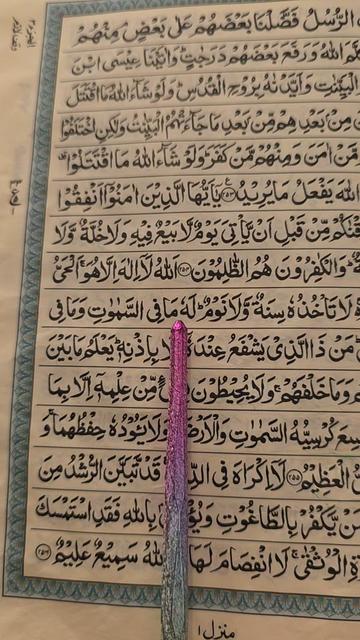 الرُّسُلُ فَضَّلْنَا بَعْضَهُمْ عَلٰى بَعْضٍ مِنْهُمْ
اللّٰهُ وَرَفَعَ بَعْضَهُمْ دَرَجٰتٍ وَاٰتَيْنَا عِيْسَى ابْنَ
الْبَيِّنٰتِ وَاَيَّدْنٰهُ بِرُوْحِ الْقُدُسِ وَلَوْ شَآءَ اللّٰهُ مَا اقْتَتَلَ
مِنْ بَعْدِهِمْ مِّنْ بَعْدِ مَا جَآءَتْهُمُ الْبَيِّنٰتُ وَلٰكِنِ اخْتَلَفُوْا
مَّنْ اٰمَنَ وَمِنْهُمْ مَّنْ كَفَرَ وَلَوْ شَآءَ اللّٰهُ مَا اقْتَتَلُوْا
اللّٰهَ يَفْعَلُ مَا يُرِيْدُ ۝٢٥٣ يٰۤاَيُّهَا الَّذِيْنَ اٰمَنُوْۤا اَنْفِقُوْا
مِّنْ قَبْلِ اَنْ يَّاْتِيَ يَوْمٌ لَّا بَيْعٌ فِيْهِ وَلَا خُلَّةٌ وَّلَا
وَالْكٰفِرُوْنَ هُمُ الظّٰلِمُوْنَ ۝٢٥٤ اَللّٰهُ لَاۤ اِلٰهَ اِلَّا هُوَ الْحَيُّ
لَا تَاْخُذُهٗ سِنَةٌ وَّلَا نَوْمٌ لَهٗ مَا فِي السَّمٰوٰتِ وَمَا فِي
مَنْ ذَا الَّذِيْ يَشْفَعُ عِنْدَهٗۤ اِلَّا بِاِذْنِهٖ يَعْلَمُ مَا بَيْنَ
وَمَا خَلْفَهُمْ وَلَا يُحِيْطُوْنَ مِّنْ عِلْمِهٖۤ اِلَّا بِمَا
كُرْسِيُّهُ السَّمٰوٰتِ وَالْاَرْضَ وَلَا يَئُوْدُهٗ حِفْظُهُمَا وَ
الْعَظِيْمُ ۝٢٥٥ لَاۤ اِكْرَاهَ فِي قَدْ تَّبَيَّنَ الرُّشْدُ مِنَ
يَّكْفُرْ بِالطَّاغُوْتِ بِاللّٰهِ فَقَدِ اسْتَمْسَكَ
الْوُثْقٰى لَا انْفِصَامَ لَهَا سَمِيْعٌ عَلِيْمٌ ۝٢٥٦
منزل ١